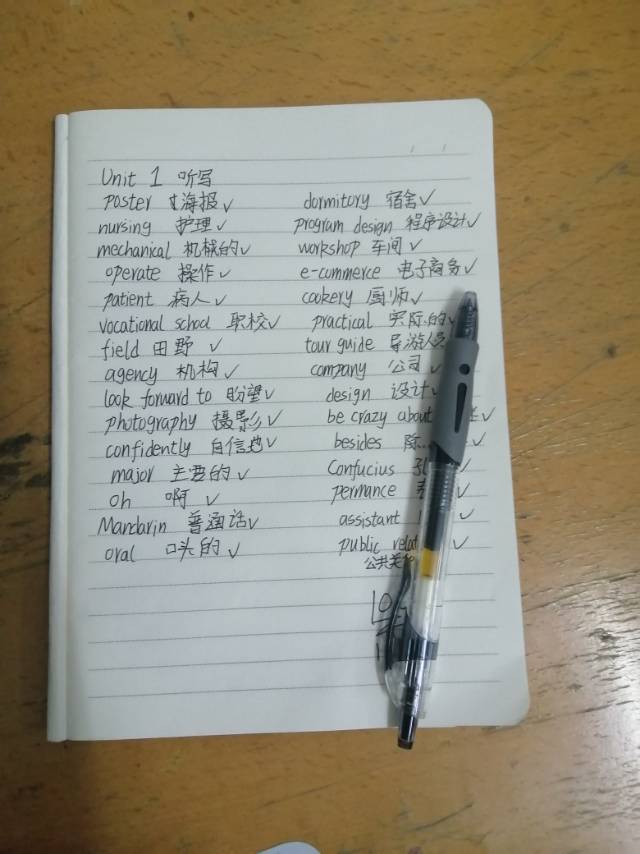 Unit 1 听写
poster 海报 ✓
nursing 护理 ✓
mechanical 机械的 ✓
operate 操作 ✓
patient 病人 ✓
vocational school 职校 ✓
field 田野 ✓
agency 机构 ✓
look forward to 盼望 ✓
photography 摄影 ✓
confidently 自信地 ✓
major 主要的 ✓
Oh 啊 ✓
Mandarin 普通话 ✓
oral 口头的 ✓
dormitory 宿舍 ✓
program design 程序设计 ✓
workshop 车间 ✓
e-commerce 电子商务 ✓
cookery 厨师 ✓
practical 实际的 ✓
tour guide 导游人员
company 公司 ✓
design 设计 ✓
be crazy about ✓
besides 除... ✓
Confucius 孔 ✓
permance ✓
assistant ✓
public ✓
公共关